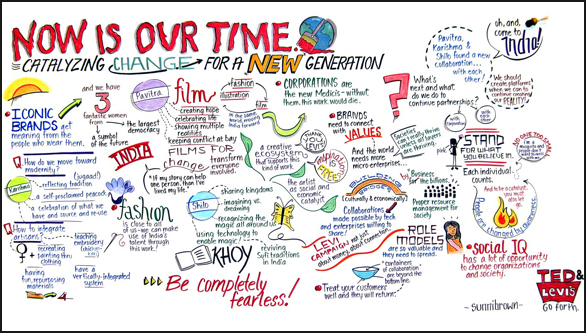 NOW IS OUR TIME.
CATALYZING CHANGE FOR A NEW GENERATION
ICONIC
BRANDS get
meaning from
people who wear them.
and we have
3
fantastic women
a symbol
of the future
the largest
democracy
INDIA
How do we move toward
modernity?
(jugaad)
Karishma
reflecting tradition
a self-proclaimed peacock
a celebration of what we
have and source and re-use
How to integrate
artisans?
recreating +
painting tiny
clothes
teaching
embroidery
having
fun, repurposing
materials
have a
vertically-integrated
system
Pavitra
film
fashion
illustration
film
creating hope
celebrating life
showing multiple
realities
keeping conflict at bay
FILMS FOR
change
transform
everyone
involved.
"If my story can help
one person, then I've
lived my life."
fashion
is close to all
of us-we can make
use of India's
talent through
this work.
Shilo
sharing kingdoms
imagining vs.
recognizing the
magic all around us
using technology to
enable magic
KHOJ
reviving
soft traditions
in India
Be completely
fearless!
CORPORATIONS are
the new Medicis - without
them, this work would die.
THANK
YOU,
LEVI'S
a creative
ecosystem
that supports this
kind of work.
the artist
as social and
economic
catalyst
BRANDS
need to
connect
with
VALUES
And the world
needs more
micro-enterprise...
(culturally & economically)
Collaborations
made possible by tech
and enterprises willing to
share!
LEVI
CAMPAIGN not just
about money, about connection.
"containers
of collaboration"
are beyond the
bottom line.
Treat your customers
well and they will return.
?
What's
next and
what do
we do to
continue
partnerships?
Societies
can really thrive
when
by
Business
"for the billions."
Proper resource
management for
society
ROLE
MODELS
are so valuable and
they need to spread.
Pavitra,
Karishma &
Shilo found a new
collaboration...
with each
other!
oh, and,
come to
India!
We should
create platforms
when we can to
continue creating
our REALITY!
pink
STAND
FOR WHAT
YOU BELIEVE IN.
Each individual
counts.
People are changed by audience.
social IQ
has a lot of opportunity
to change organizations
and society.
-sunnibrown-
TED &
LEVI'S
GO forth.